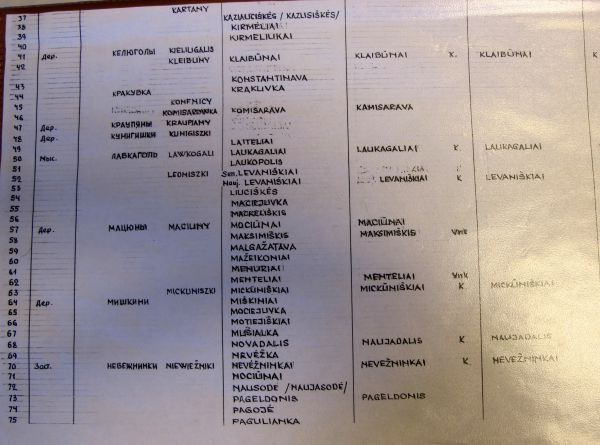 37 KARTANY KAZIAUCIŠKĖS / KAZLISIŠKĖS/
38 KIRMELIAI
39 KIRMELIUKAI
40
41 Дер. КЕЛЮГОЛЫ KIELILIGALIS
42 KLEIBUNY KLAIBŪNAI KLAIBŪNAI K. KLAIBŪNAI K
43 KONSTANTINAVA
44 КРАКУВКА KRAKUVKA
45 KONFNICY
46 KOMISAROWKA KOMISARAVA KAMISARAVA
47 Дер. КРАУПЯНЫ KRAUPIANY
48 Дер. КУНИГИШКИ KUNIGISZKI
49 LAITELIAI
50 Мыс. ЛАВКАГОЛЬ LAWKOGALI LAUKAGALIAI LAUKAGALIAI K. LAUKAGALIAI
51 LAUKOPOLIS
52 LEONISZKI Sen. LEVANIŠKIAI
53 Nauj. LEVANIŠKIAI LEVANIŠKIAI K LEVANIŠKIAI
54 LIUCIŠKĖS
55 MACIEJUVKA
MACKELIŠKIS
56 MOCIŪNAI MACIŪNAI
57 Дер. МАЦЮНЫ MACIUNY MAKSIMIŠKIS MAKSIMIŠKIS Vnk
58
59 MALGAŽATAVA
60 MAŽEIKONIAI
61 MENURIAI
62 MENTELIAI MENTELIAI Vnk
63 MICKUNISZKI MICKŪNIŠKIAI MICKŪNIŠKIAI K. MICKŪNIŠKIAI
64 Дер. МИШКИНИ MIŠKINIAI
65 MOCIEJUVKA
66 MOTIEJIŠKIAI
67 MUŠIALKA
68 NOVADALIS NAUJADALIS K NAUJADALIS
69 NEVĖŽKA
70 Заст. НЕВЕЖНИНКИ NIEWIEŻNIKI NEVĖŽNINKAI NEVĖŽNINKAI K. NEVĖŽNINKAI
71 NOCIŪNAI
72 NAUSODĖ /NAUJASODĖ/
73 PAGELDONIS PAGELDONIS
74 PAGOJĖ
75 PAGULIANKA